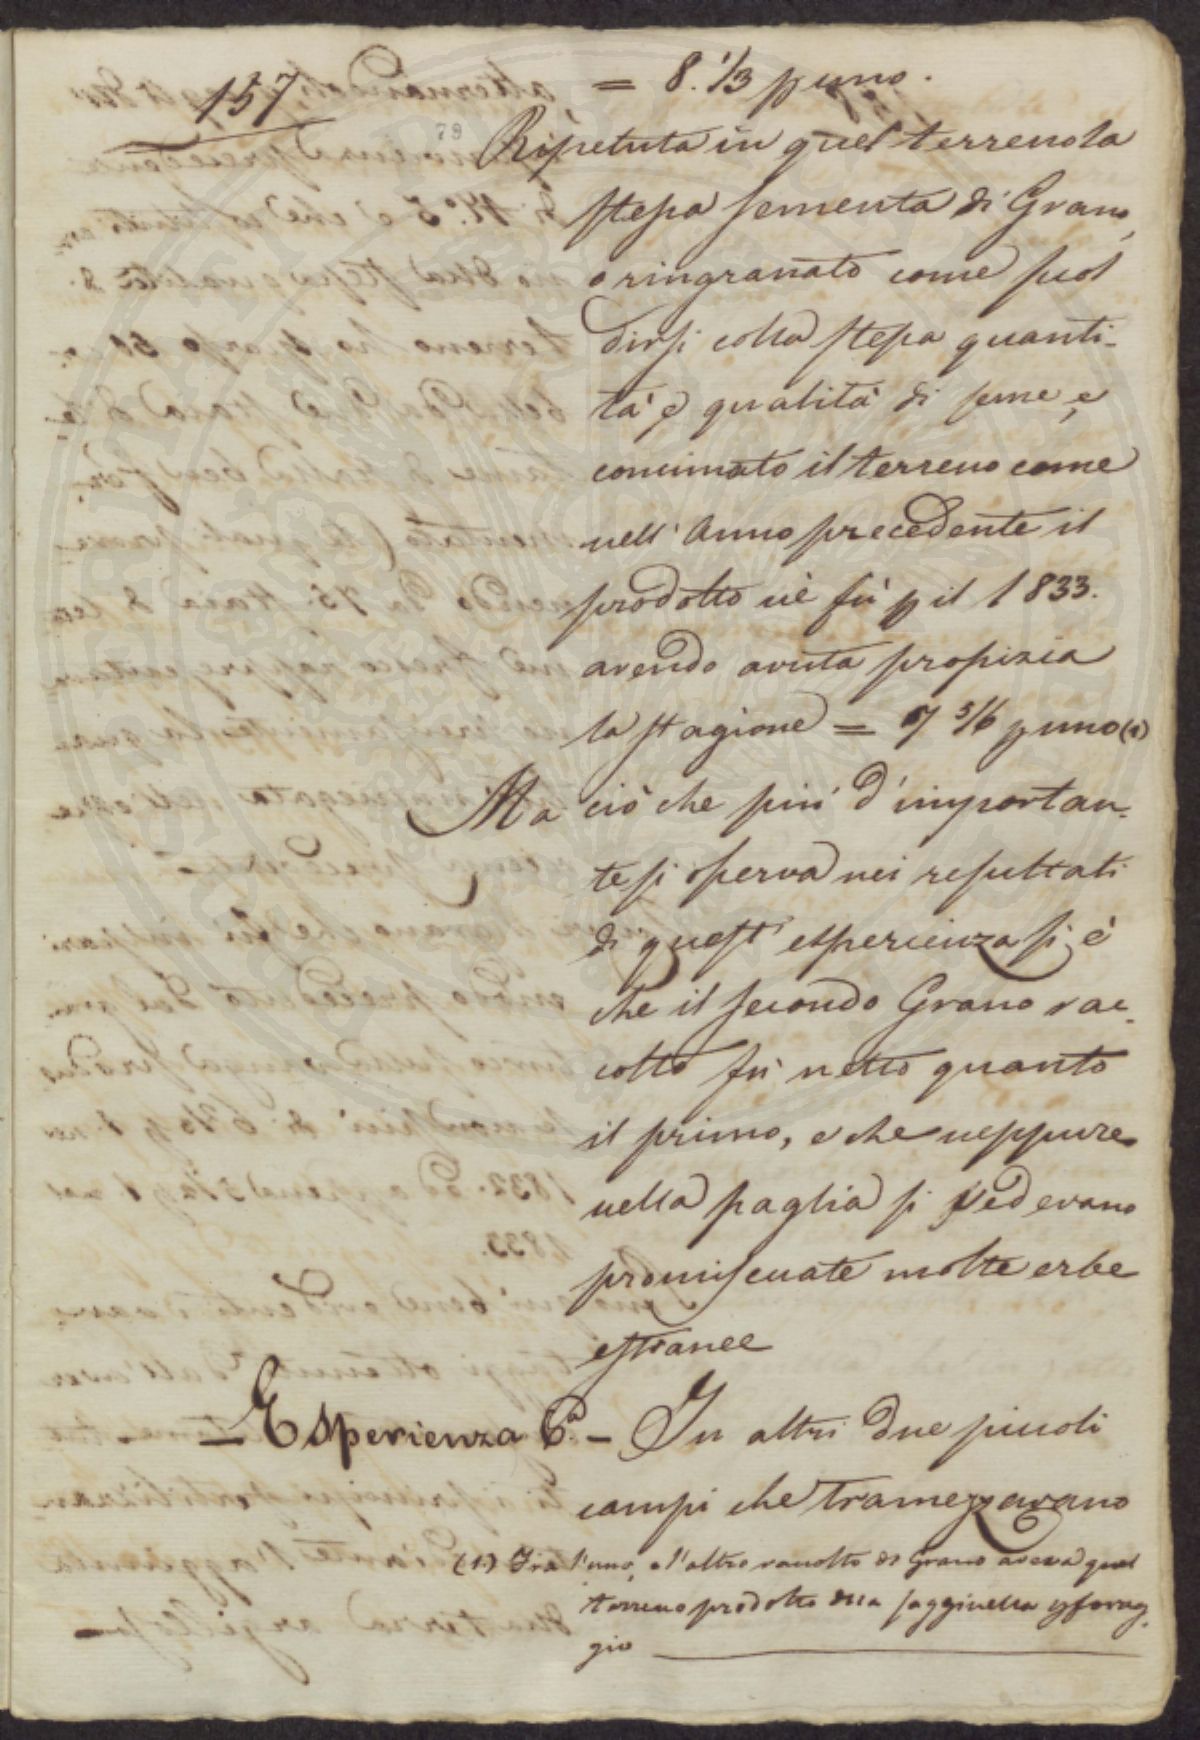 157
79
= 8. 1/3 p uno.
Ripetuta in quel terreno la
stessa sementa di Grano,
o ringranato come suol
dirsi colla stessa quanti-
tà e qualità di seme, e
concimato il terreno come
nell' Anno precedente il
prodotto nè fù p il 1833.
avendo avuta propizia
la stagione = 7 5/6 p uno (1)
Ma ciò che più d'importan-
te si osserva nei resultati
di quest' esperienza si è
che il secondo Grano rac-
colto fù netto quanto
il primo, e che neppure
nella paglia si vedevano
promiscuate molte erbe
estranee
- Esperienza 6.a - In altri due piccoli
campi che tramezzavano
(1.) Tra l'uno, e l'altro raccolto di Grano aveva quel
terreno prodotto della sagginella p forag-
gio